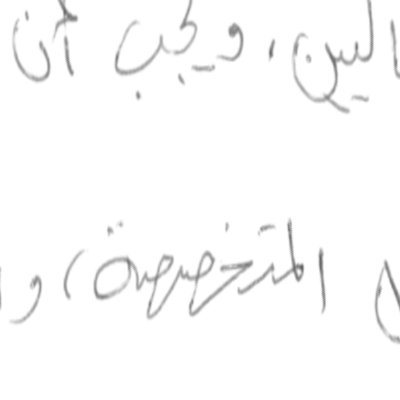 اليمن، ويجب أن
المتخصصة، و